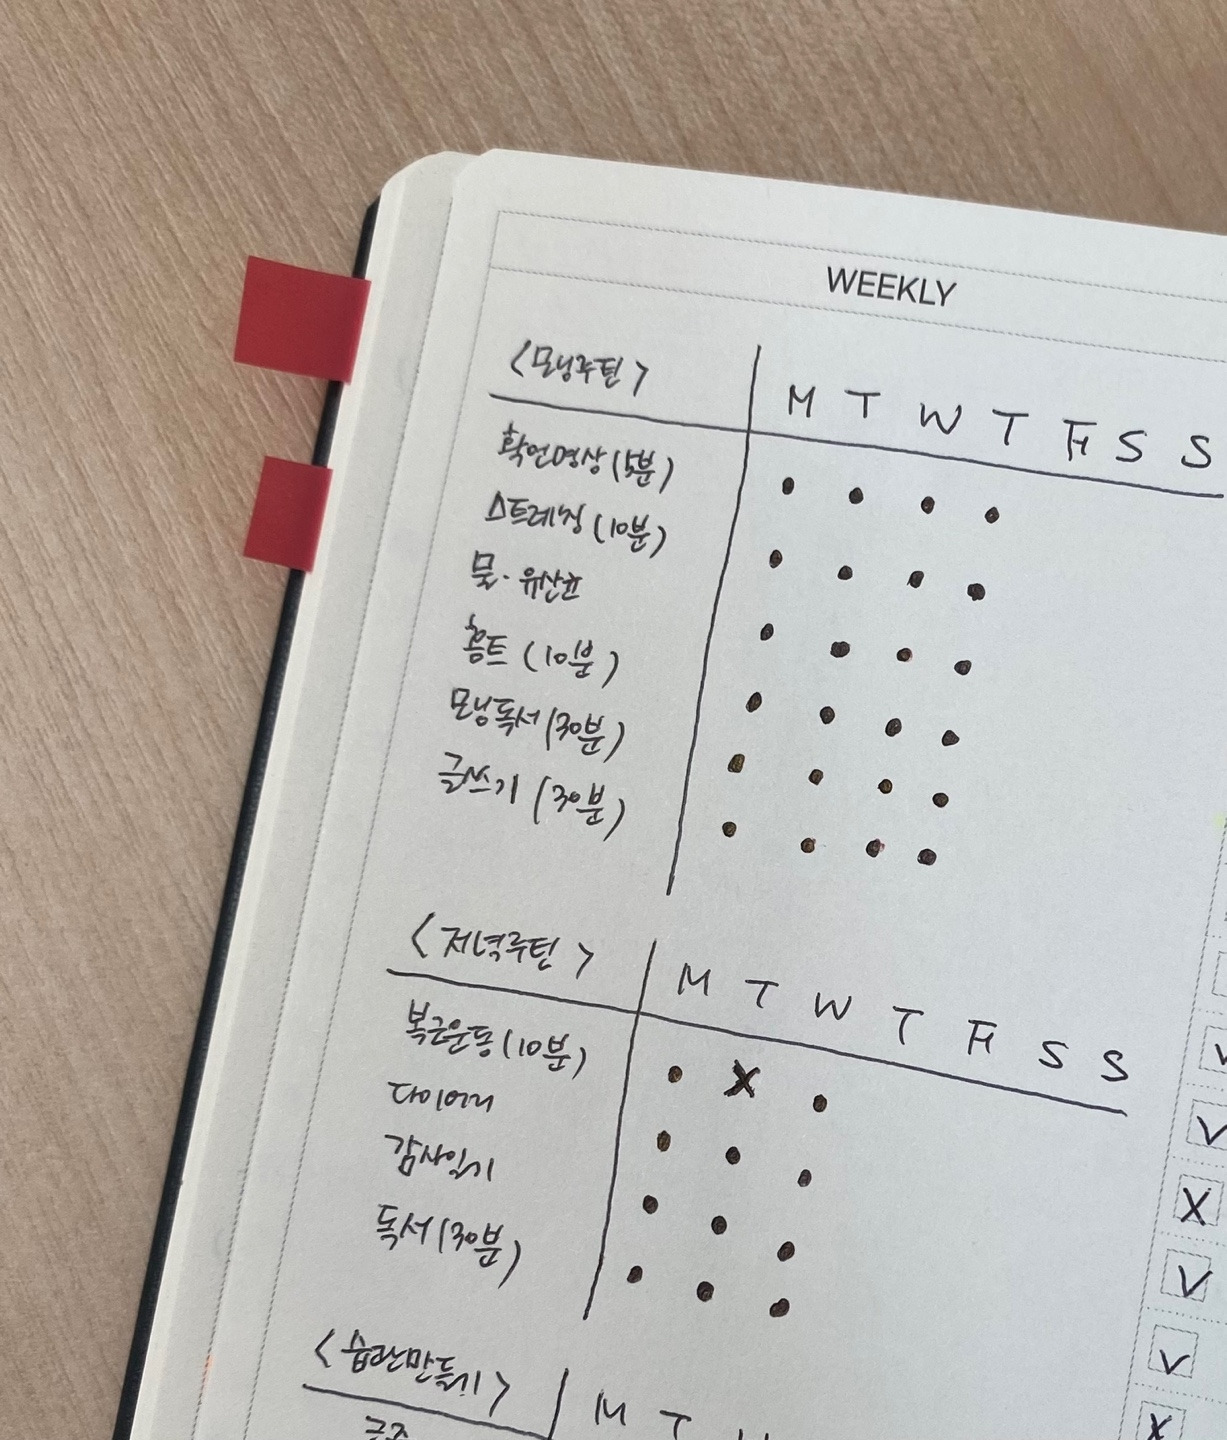 WEEKLY
<모닝루틴> M T W T F S S
확언명상 (5분)
스트레칭 (10분)
물·유산균
홈트 (10분)
모닝독서 (30분)
글쓰기 (30분)
<저녁루틴> M T W T F S S
복근운동 (10분) X
다이어리
감사일기
독서 (30분)
<습관만들기> M T
금주